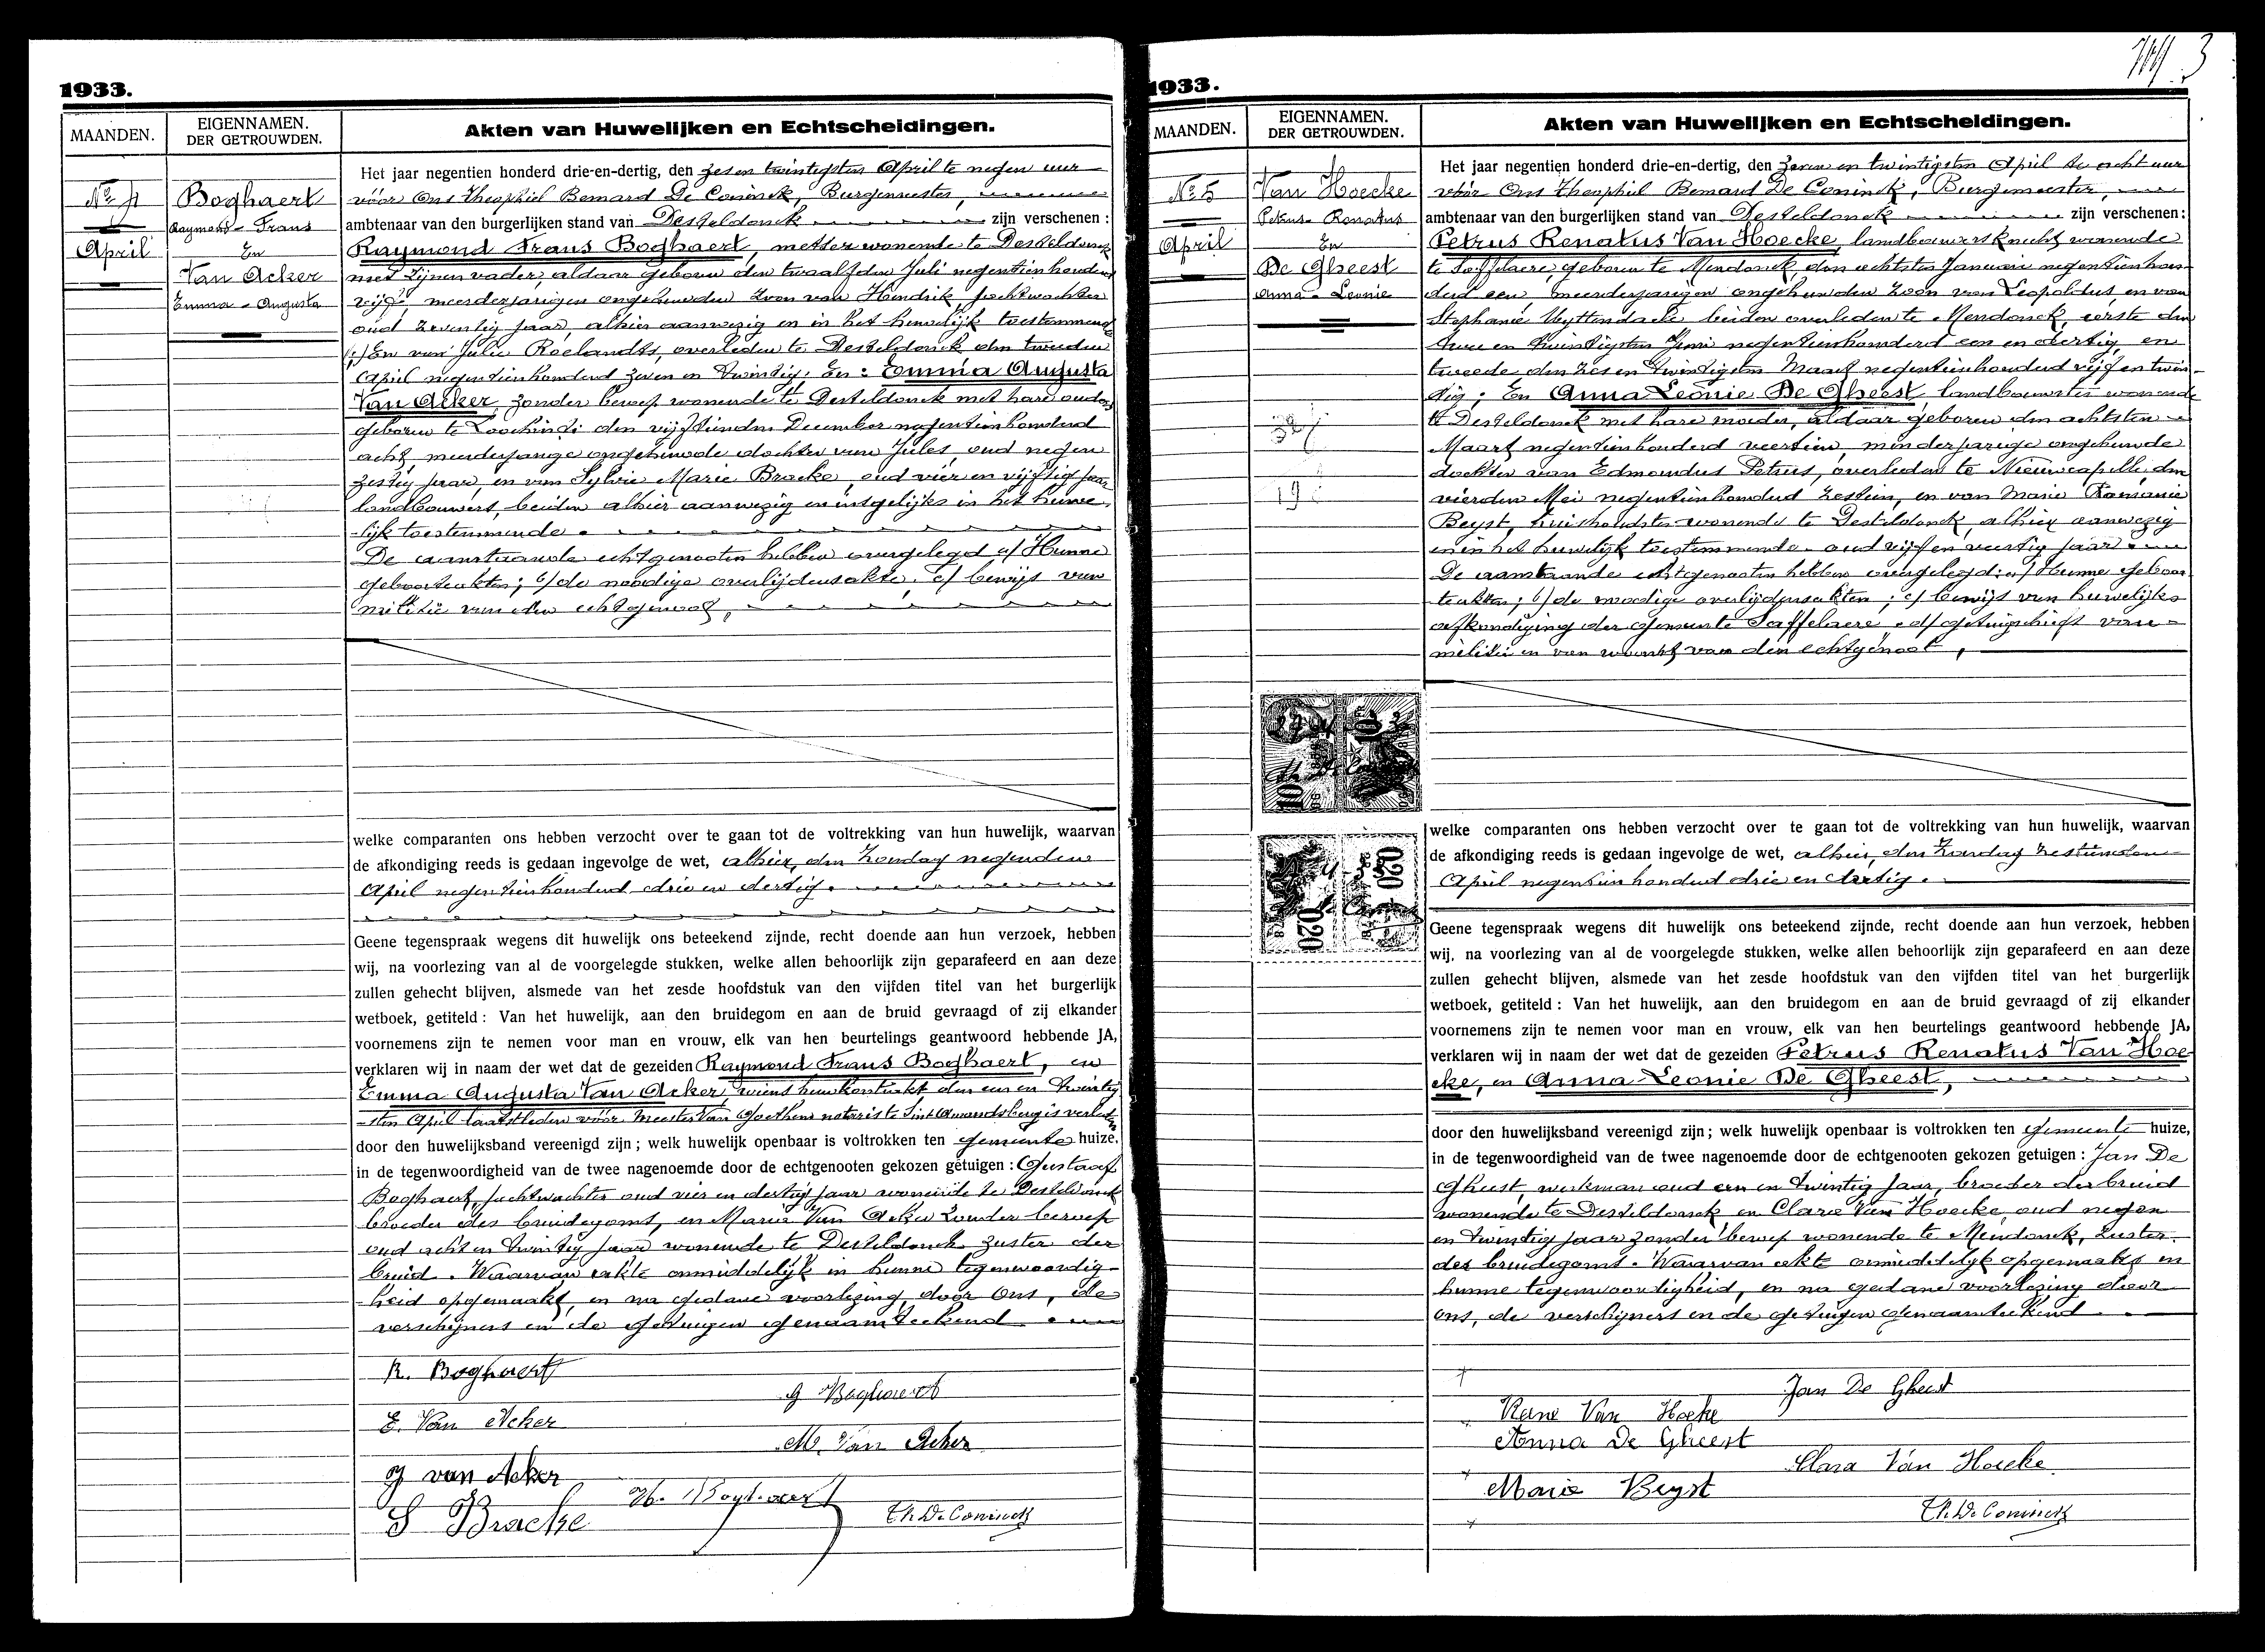 1933.
MAANDEN.
EIGENNAMEN.
DER GETROUWDEN.
Akten van Huwelijken en Echtscheidingen.
No 4
April
Boghaert
Raymond-Frans
En
Van Acker
Emma-Augusta
Het jaar negentien honderd drie-en-dertig, den zes en twintigsten April te negen uur
vóór Ons Theophiel Bernard De Coninck, Burgemeester,
ambtenaar van den burgerlijken stand van Desteldonck zijn verschenen :
Raymond Frans Boghaert, metser wonende te Desteldonck
met zijnen vader, aldaar geboren den twaalfden Juli negentienhonderd
vijf, meerderjarigen ongehuwden zoon van Hendrik, jachtwachter
oud zeventig jaar, alhier aanwezig en in het huwelijk toestemmend
En van Julie Roelandts, overleden te Desteldonck den tweeden
April negentienhonderd zeven en twintig. En : Emma Augusta
Van Acker, zonder beroep wonende te Desteldonck met hare ouders
geboren te Loochristi den vijftienden December negentienhonderd
acht, meerderjarige ongehuwde dochter van Jules, oud negen
zestig jaar, en van Sylvie Marie Bracke, oud vier en vijftig jaar
landbouwers, beiden alhier aanwezig en insgelijks in het huwe
lijk toestemmende.
De aanstaande echtgenooten hebben overgelegd a/ Hunne
geboorteakten; b/ de noodige overlijdensakte, c/ bewijs van
militie van den echtgenoot,
welke comparanten ons hebben verzocht over te gaan tot de voltrekking van hun huwelijk, waarvan
de afkondiging reeds is gedaan ingevolge de wet, alhier, den Zondag negenden
April negentienhonderd drie en dertig.
Geene tegenspraak wegens dit huwelijk ons beteekend zijnde, recht doende aan hun verzoek, hebben
wij, na voorlezing van al de voorgelegde stukken, welke allen behoorlijk zijn geparafeerd en aan deze
zullen gehecht blijven, alsmede van het zesde hoofdstuk van den vijfden titel van het burgerlijk
wetboek, getiteld : Van het huwelijk, aan den bruidegom en aan de bruid gevraagd of zij elkander
voornemens zijn te nemen voor man en vrouw, elk van hen beurtelings geantwoord hebbende JA,
verklaren wij in naam der wet dat de gezeiden Raymond Frans Boghaert, en
Emma Augusta Van Acker, wiens huwkontrakt den een en twintig
sten April laatstleden vóór Meester Van Goethem notaris te Sint Amandsberg is verleden
door den huwelijksband vereenigd zijn ; welk huwelijk openbaar is voltrokken ten gemeente huize,
in de tegenwoordigheid van de twee nagenoemde door de echtgenooten gekozen getuigen : Gustaaf
Boghaert, jachtwachter oud vier en dertig jaar wonende te Desteldonck
broeder des bruidegoms, en Maria Van Acker zonder beroep
oud acht en twintig jaar wonende te Desteldonck zuster der
bruid. Waarvan akte onmiddelijk in hunne tegenwoordig
heid opgemaakt, en na gedane voorlezing door Ons, de
verschijners en de getuigen genaamteekend
R. Boghaert
G Boghaert
E. Van Acker
M. Van Acker
J van Acker
H. Boghaert
S Bracke
Th. De Coninck
1933.
3
MAANDEN.
EIGENNAMEN.
DER GETROUWDEN.
Akten van Huwelijken en Echtscheidingen.
No 5
April
Van Hoecke
Petrus-Renatus
En
De Gheest
Anna-Leonie
Het jaar negentien honderd drie-en-dertig, den zeven en twintigsten April te acht uur
vóór Ons Theophiel Bernard De Coninck, Burgemeester,
ambtenaar van den burgerlijken stand van Desteldonck zijn verschenen :
Petrus Renatus Van Hoecke, landbouwersknecht wonende
te Saffelaere, geboren te Mendonck, den achtsten Januari negentienhon
derd een, meerderjarigen ongehuwden zoon van Leopoldus, en van
Stephanie Uyttendaele beiden overleden te Mendonck, eerste den
twee en twintigsten Juni negentienhonderd een en dertig, en
tweede den zes en twintigsten Maart negentienhonderd vijf en twin-
tig; En Anna Leonie De Gheest, landbouwster wonende
te Desteldonck met hare moeder, aldaar geboren den achtsten
Maart negentienhonderd veertien, minderjarige ongehuwde
dochter van Edmondus Petrus, overleden te Nieuwcapelle den
vierden Mei negentienhonderd zestien, en van Marie Romanie
Beyst, huishoudster wonende te Desteldonck, alhier aanwezig
en in het huwelijk toestemmende. oud vijf en veertig jaar.
De aanstaande echtgenooten hebben overgelegd: a/ Hunne geboor
teakten; b/ de noodige overlijdensakten; c/ bewijs van huwelijks
afkondiging der gemeente Saffelaere. d/ getuigschrift van
militie en van woonst van den echtgenoot,
27 4
10
0.20
0.20
welke comparanten ons hebben verzocht over te gaan tot de voltrekking van hun huwelijk, waarvan
de afkondiging reeds is gedaan ingevolge de wet, alhier, den Zondag zestienden
April negentienhonderd drie en dertig.
Geene tegenspraak wegens dit huwelijk ons beteekend zijnde, recht doende aan hun verzoek, hebben
wij, na voorlezing van al de voorgelegde stukken, welke allen behoorlijk zijn geparafeerd en aan deze
zullen gehecht blijven, alsmede van het zesde hoofdstuk van den vijfden titel van het burgerlijk
wetboek, getiteld : Van het huwelijk, aan den bruidegom en aan de bruid gevraagd of zij elkander
voornemens zijn te nemen voor man en vrouw, elk van hen beurtelings geantwoord hebbende JA,
verklaren wij in naam der wet dat de gezeiden Petrus Renatus Van Hoe-
cke, en Anna Leonie De Gheest,
door den huwelijksband vereenigd zijn ; welk huwelijk openbaar is voltrokken ten gemeente huize,
in de tegenwoordigheid van de twee nagenoemde door de echtgenooten gekozen getuigen : Jan De
Gheest, werkman oud een en twintig jaar, broeder der bruid
wonende te Desteldonck en Clara Van Hoecke, oud negen
en twintig jaar zonder beroep wonende te Mendonck, zuster
des bruidegoms. Waarvan akte onmiddelijk opgemaakt in
hunne tegenwoordigheid, en na gedane voorlezing door
ons, de verschijners en de getuigen genaamteekend.
Jan De Gheest
Rene Van Hoeke
Anna De Gheest
Clara Van Hoecke
Marie Beyst
Th. De Coninck